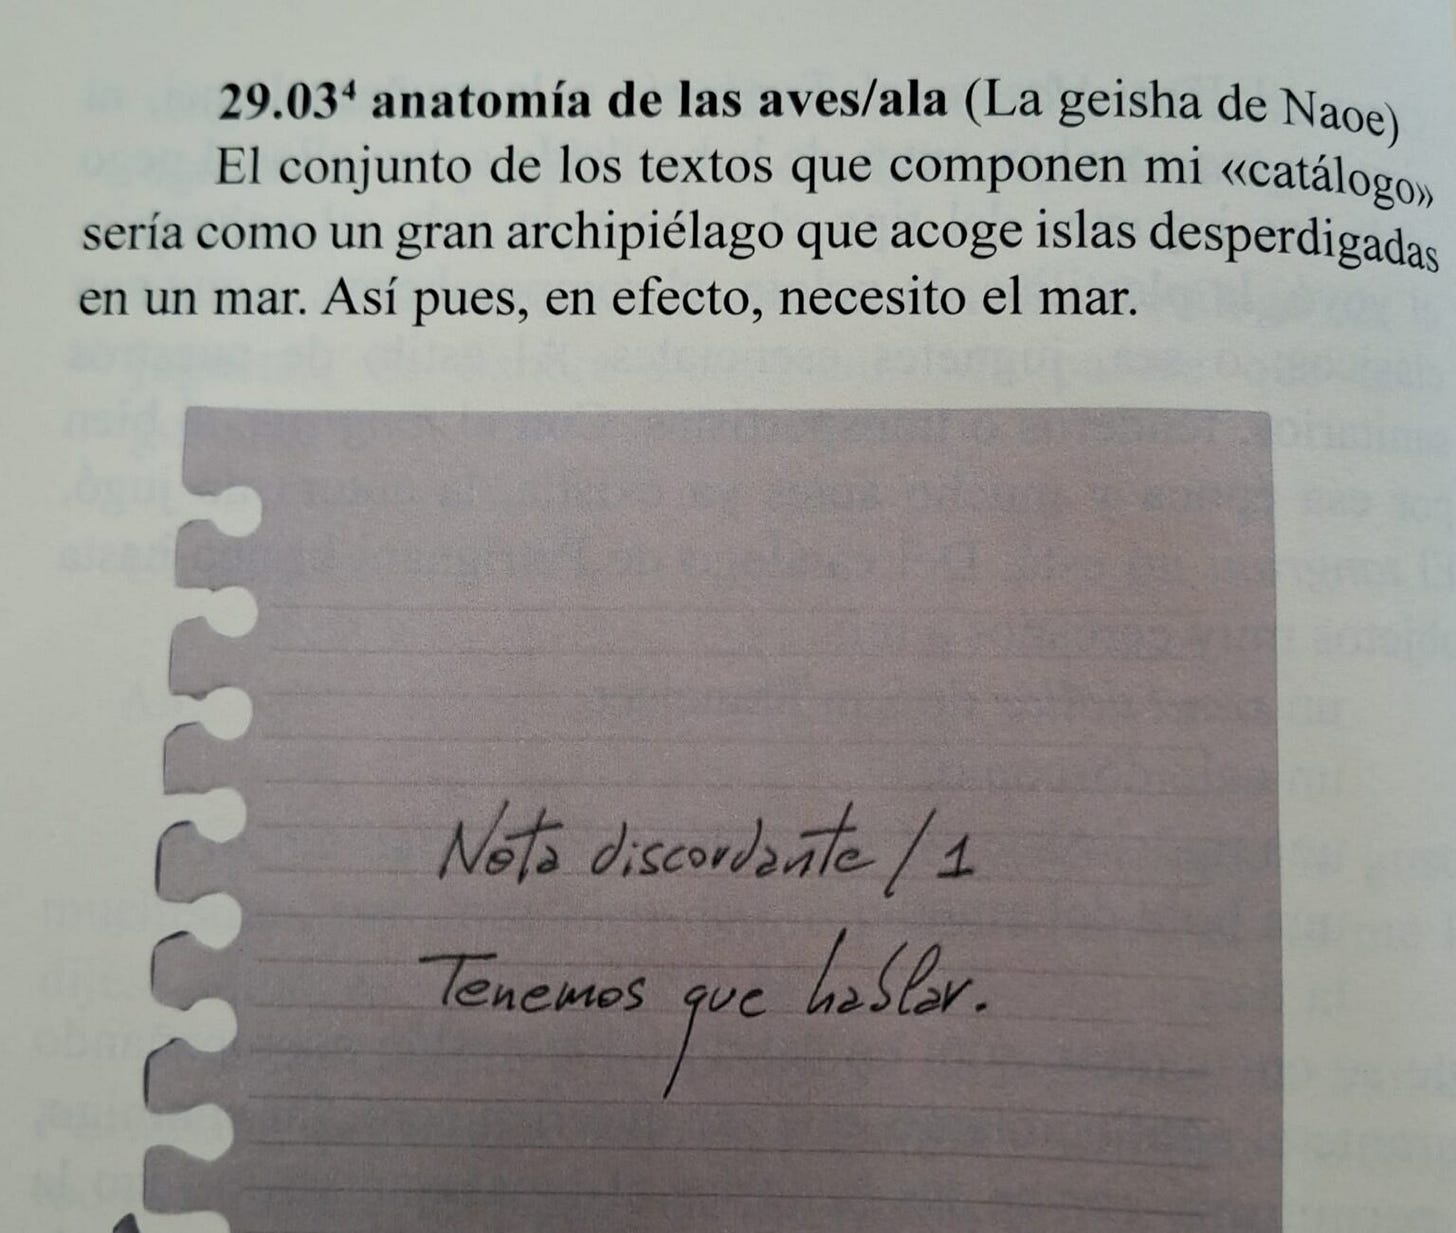 29.03⁴ anatomía de las aves/ala (La geisha de Naoe)
El conjunto de los textos que componen mi «catálogo»
sería como un gran archipiélago que acoge islas desperdigadas
en un mar. Así pues, en efecto, necesito el mar.
Nota discordante / 1
Tenemos que hablar.